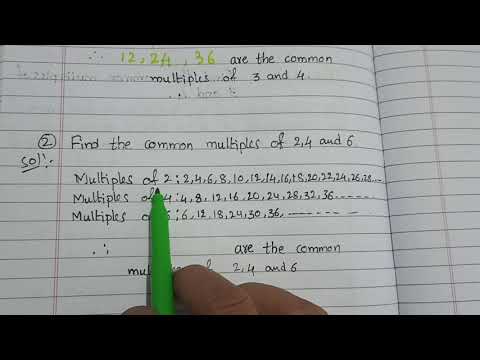 ∴ 12, 24, 36 are the common
multiples of 3 and 4.
② Find the common multiples of 2,4 and 6
Sol:-
Multiples of 2 : 2,4,6,8,10,12,14,16,18,20,22,24,26,28...
Multiples of 4 : 4,8,12,16,20,24,28,32,36......
Multiples : 6,12,18,24,30,36,-------
∴ are the common
2,4 and 6